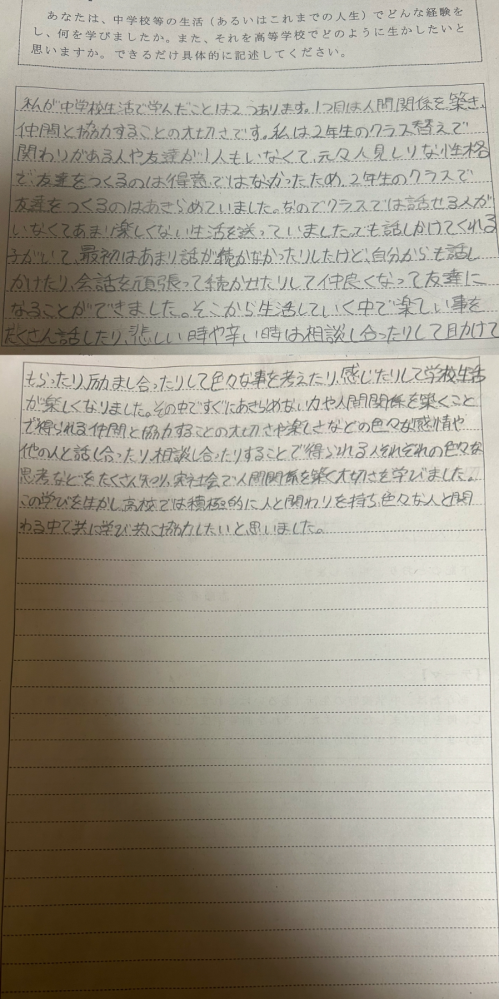 あなたは、中学校等の生活（あるいはこれまでの人生）でどんな経験を
し、何を学びましたか。また、それを高等学校でどのように生かしたいと
思いますか。できるだけ具体的に記述してください。
私が中学校生活で学んだことは2つあります。1つ目は人間関係を築き、
仲間と協力することの大切さです。私は2年生のクラス替えで
関わりがある人や友達が1人もいなくて、元々人見しりな性格
で、友達をつくるのは得意ではなかったため、2年生のクラスで
友達をつくるのはあきらめていました。なのでクラスでは話せる人が
いなくてあまり楽しくない生活を送っていました。でも話しかけてくれる
子がいて、最初はあまり話が続かなかったりしたけど、自分からも話し
かけたり、会話を頑張って続かせたりして仲良くなって友達に
なることができました。そこから生活していく中で楽しい事を
たくさん話したり、悲しい時や辛い時は相談し合ったりして助けて
もらったり、励まし合ったりして色々な事を考えたり、感じたりして学校生活
が楽しくなりました。その中ですぐにあきらめない力や人間関係を築くこと
で得られる仲間と協力することの大切さや楽しさなどの色々な感情や
他の人と話し合ったり、相談し合ったりすることで得られる人それぞれの色々な
思考などをたくさん知り、実社会で人間関係を築く大切さを学びました。
この学びを生かし、高校では積極的に人と関わりを持ち、色々な人と関
わる中で共に学び、共に協力したいと思いました。